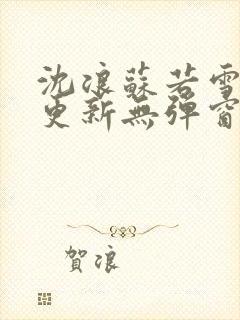 沈浪蘇若雪
更新無彈窗
賀浪